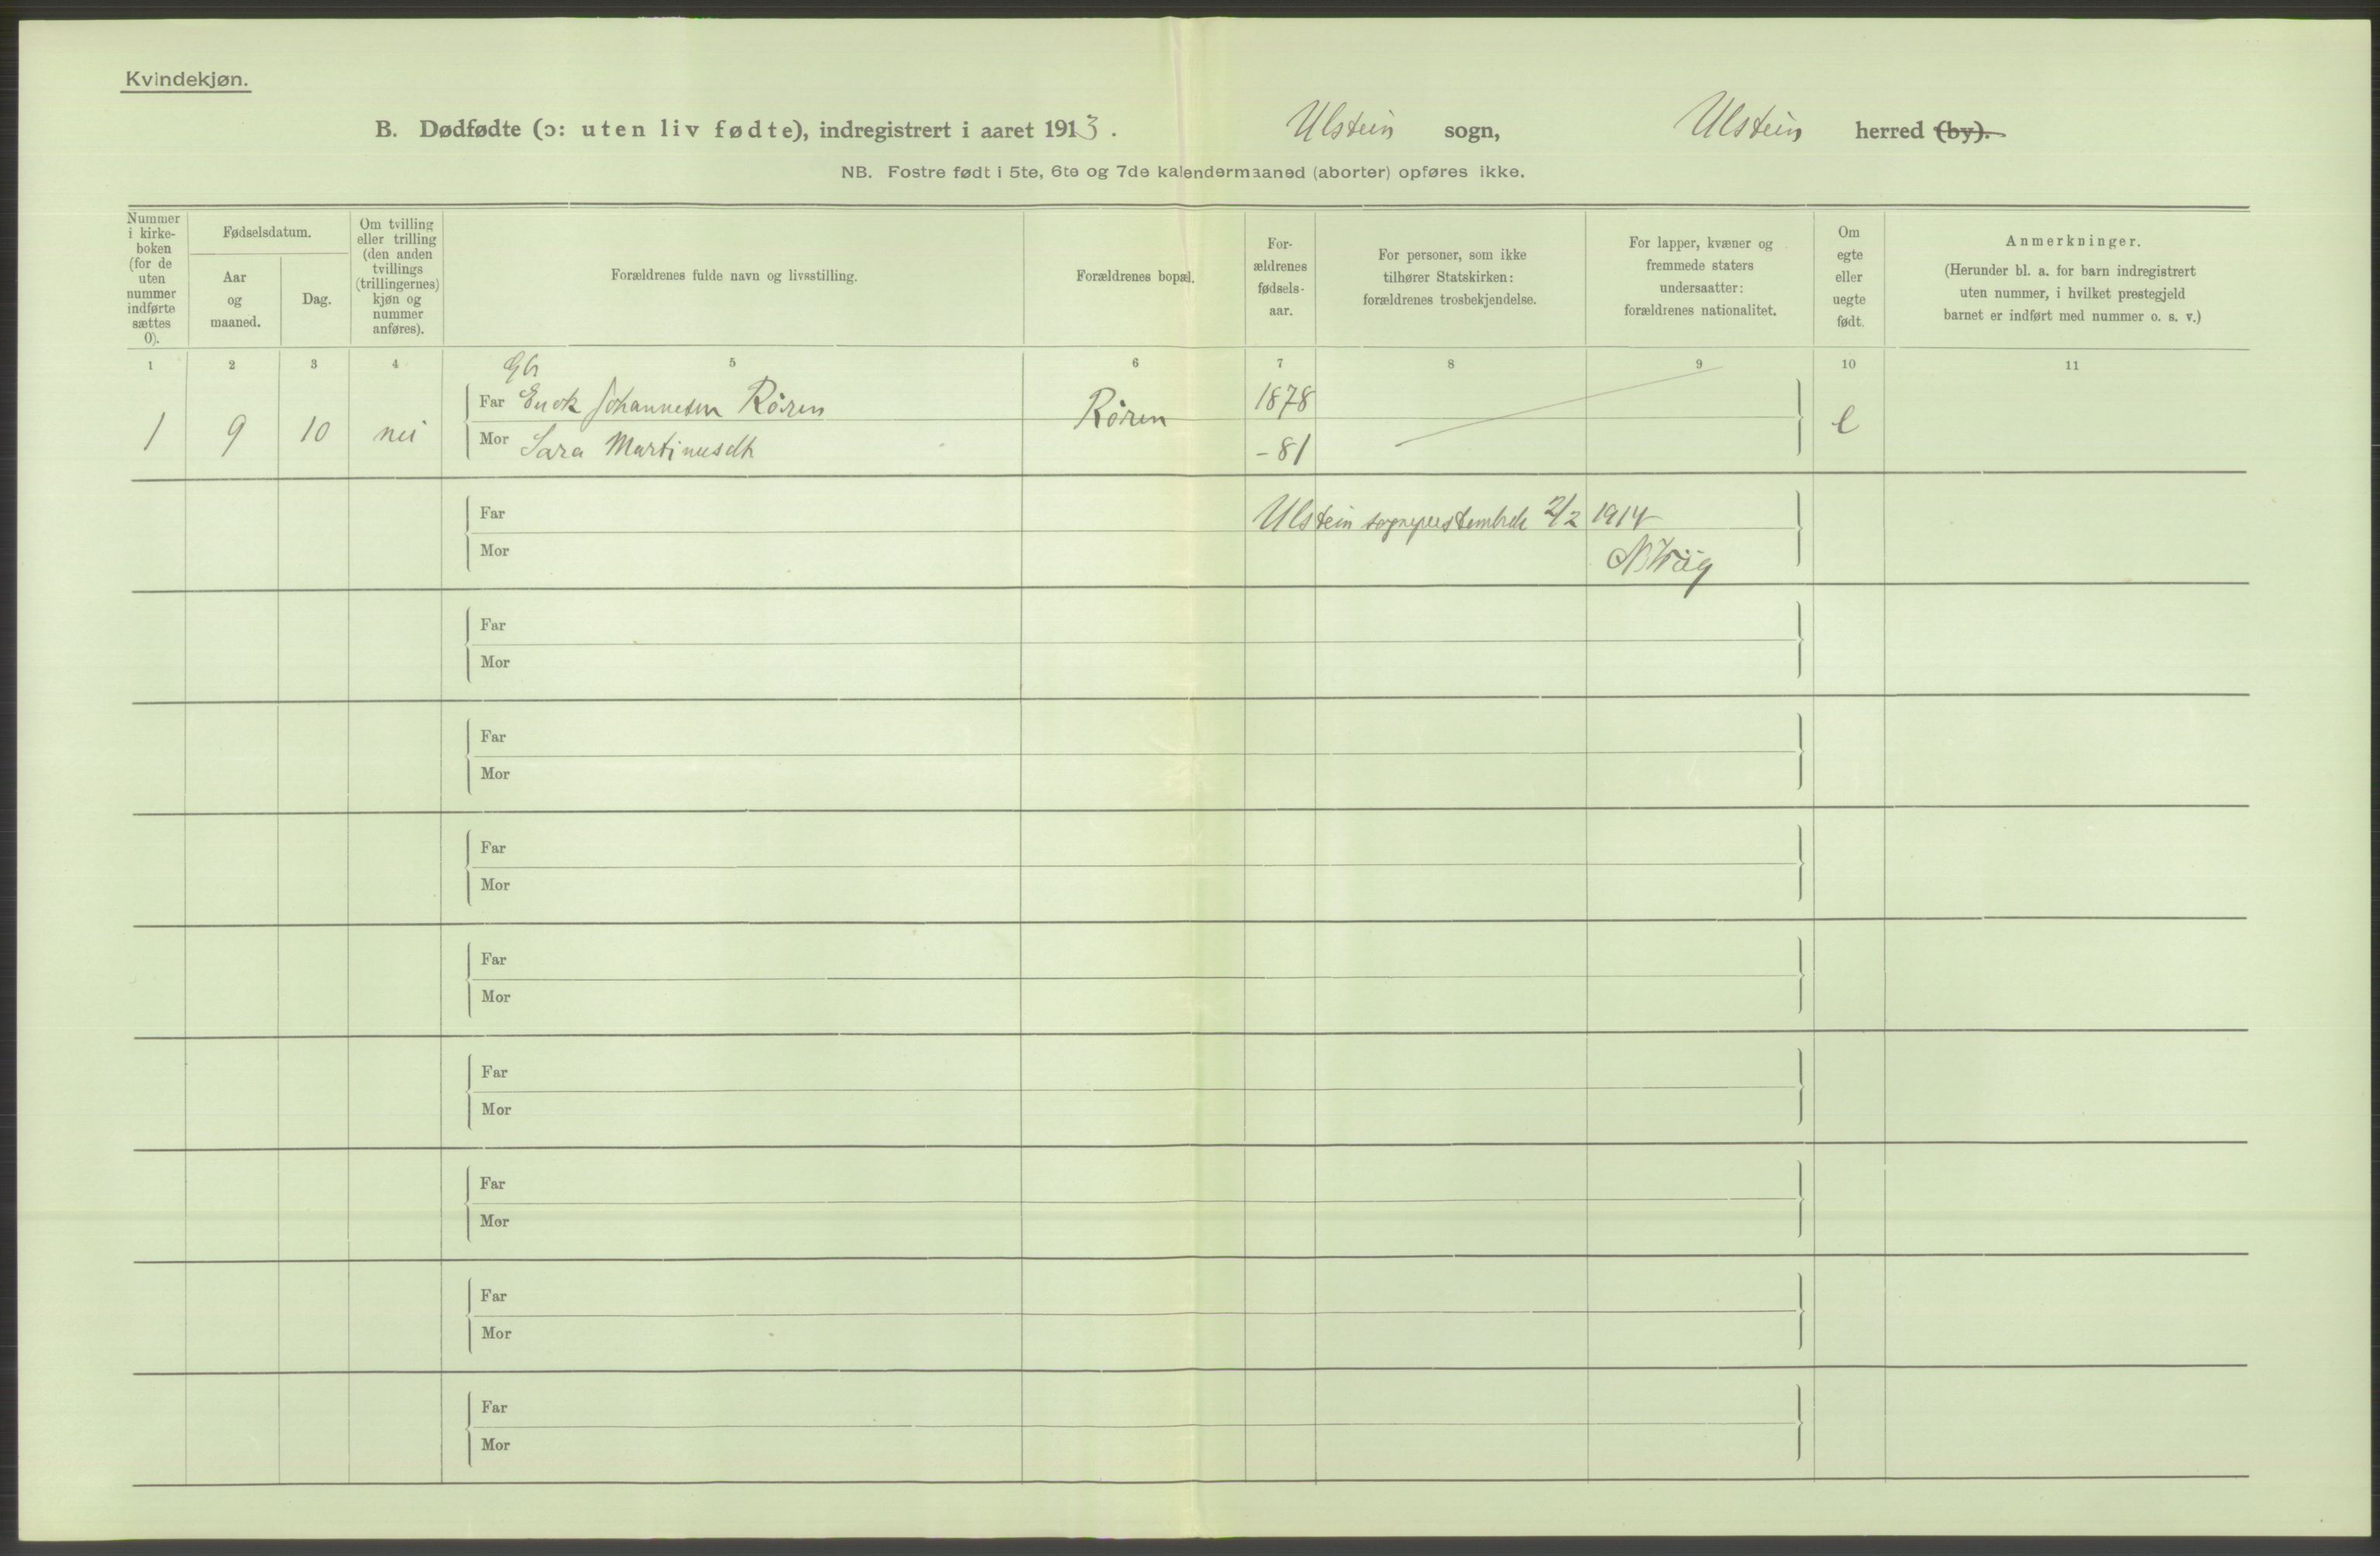 Kvindekjøn.
B. Dødfødte (ɔ: uten liv fødte), indregistrert i aaret 1913. Ulstein sogn, Ulstein herred (by).
NB. Fostre født i 5te, 6te og 7de kalendermaaned (aborter) opføres ikke.
Nummer
i kirke-
boken
(for de
uten
nummer
indførte
sættes
0).
Fødselsdatum.
Aar
og
maaned.
Dag.
Om tvilling
eller trilling
(den anden
tvillings
(trillingernes)
kjøn og
nummer
anføres).
Forældrenes fulde navn og livsstilling.
Forældrenes bopæl.
For-
ældrenes
fødsels-
aar.
For personer, som ikke
tilhører Statskirken:
forældrenes trosbekjendelse.
For lapper, kvæner og
fremmede staters
undersaatter:
forældrenes nationalitet.
Om
egte
eller
uegte
født.
Anmerkninger.
(Herunder bl. a. for barn indregistrert
uten nummer, i hvilket prestegjeld
barnet er indført med nummer o. s. v.)
1 2 3 4 5 6 7 8 9 10 11
Gbr
Far Enok Johannesen Røren 1878
1 9 10 nei Røren e
Mor Sara Martinusdtr -81
Far Ulstein sogneprestembede 2/2 1914
Mor
Far
Mor
Far
Mor
Far
Mor
Far
Mor
Far
Mor
Far
Mor
Far
Mor
Far
Mor